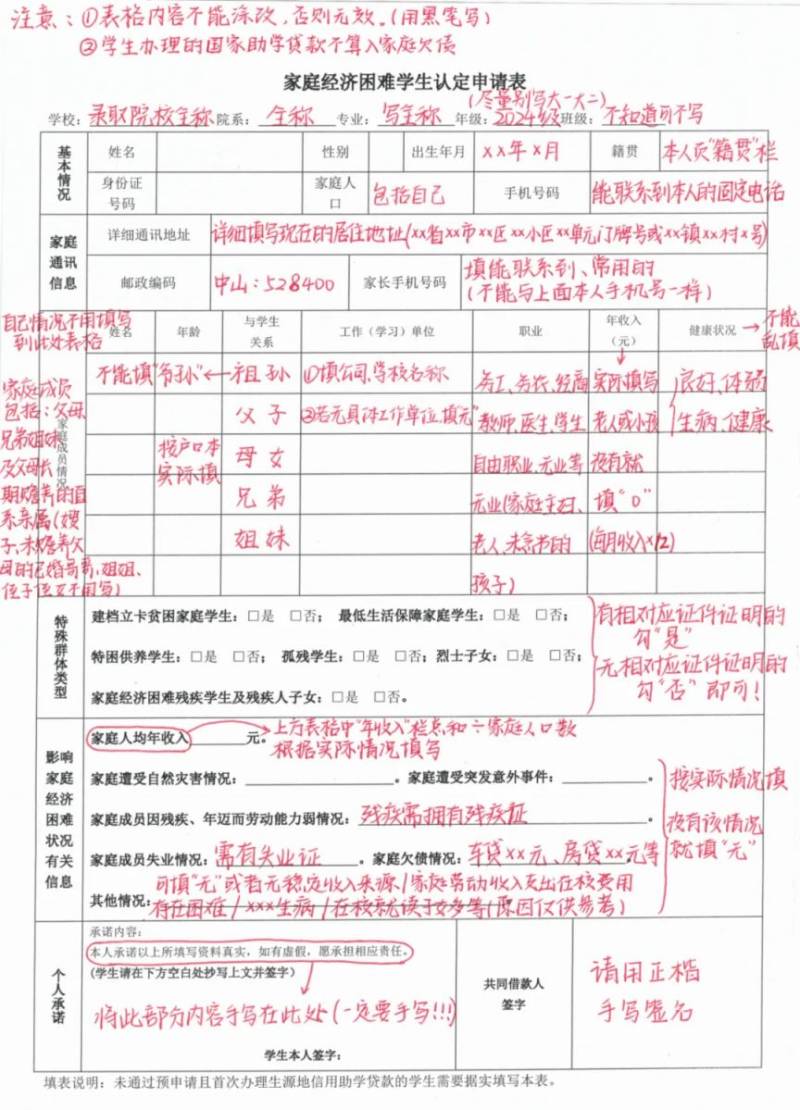 注意：①表格内容不能涂改，否则无效。(用黑笔写)
②学生办理的国家助学贷款不算入家庭欠债
家庭经济困难学生认定申请表
(尽量别写大一大二)
学校：录取院校全称 院系：全称 专业：写全称 年级：2024级 班级：不知道可不写
基本情况 姓名 性别 出生年月 xx年x月 籍贯 本人页"籍贯"栏
身份证号码 家庭人口 包括自己 手机号码 能联系到本人的固定电话
家庭通讯信息 详细通讯地址 详细填写现在的居住地址(xx省xx市xx区xx小区xx单元门牌号或xx镇xx村x号)
邮政编码 中山：528400 家长手机号码 填能联系到、常用的
(不能与上面本人手机号一样)
自己情况不用填写
到此处表格
姓名 年龄 与学生关系 工作（学习）单位 职业 年收入（元） 健康状况 → 不能乱填
家庭成员情况
家庭成员
包括：父母
兄弟姐妹
及父母长
期赡养的直
系亲属(嫂
子、未赡养父
母的已婚哥哥、姐姐、
侄子侄女不用写)
不能填"爷孙" ← 祖孙 ①填公司、学校名称 务工、务农、经商 实际填写 良好、体弱
父子 ②若无具体工作单位,填"无" 教师、医生、学生 老人或小孩 生病、健康
按户口本
实际填
母女 自由职业、无业等 没有就
兄弟 无业(家庭主妇、 填"0"
姐妹 老人、未念书的 (每月收入x12)
孩子)
特殊群体类型
建档立卡贫困家庭学生：□是 □否； 最低生活保障家庭学生：□是 □否；
特困供养学生：□是 □否； 孤残学生：□是 □否；烈士子女：□是 □否；
家庭经济困难残疾学生及残疾人子女：□是 □否。
有相对应证件证明的
勾"是"
无相对应证件证明的
勾"否"即可！
影响家庭经济困难状况有关信息
家庭人均年收入 元。 上方表格中"年收入"栏总和÷家庭人口数
根据实际情况填写
家庭遭受自然灾害情况： 。家庭遭受突发意外事件： 。
家庭成员因残疾、年迈而劳动能力弱情况：残疾需拥有残疾证
家庭成员失业情况：需有失业证 。家庭欠债情况：车贷xx元、房贷xx元等
按实际情况填
没有该情况
就填"无"
可填"无"或者无稳定收入来源/家庭劳动收入支出在校费用
其他情况：存在困难/xxx生病/在校就读子女多等(原因仅供参考)
个人承诺
承诺内容：
本人承诺以上所填写资料真实，如有虚假，愿承担相应责任。
(学生请在下方空白处抄写上文并签字)
将此部分内容手写在此处(一定要手写!!!)
学生本人签字：
共同借款人签字
请用正楷
手写签名
填表说明：未通过预申请且首次办理生源地信用助学贷款的学生需要据实填写本表。